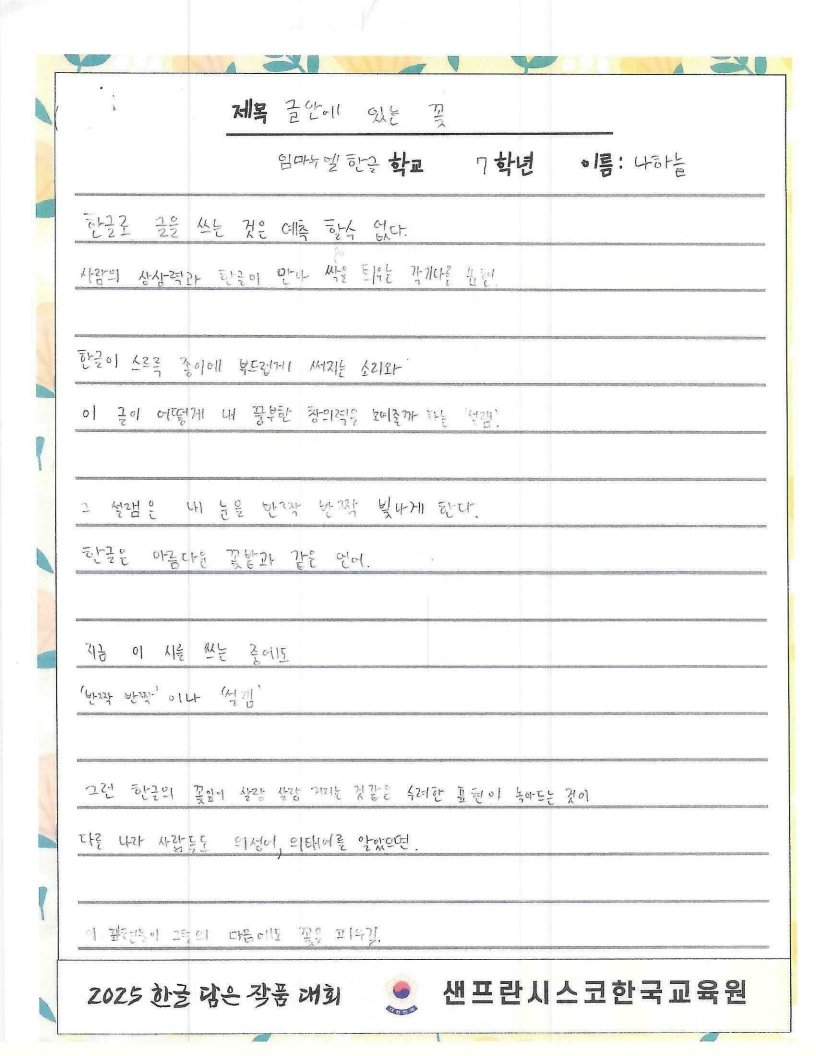 제목 글안에 있는 꽃
임마누엘 한글 학교 7 학년 이름: 나하늘
한글로 글을 쓰는 것은 예측 할수 없다.
사람의 상상력과 한글이 만나 싹을 틔우는 각기다른 표현.
한글이 스르륵 종이에 부드럽게 써지는 소리와
이 글이 어떻게 내 풍부한 창의력을 보여줄까 하는 '설렘'.
그 설렘은 내 눈을 반짝 반짝 빛나게 한다.
한글은 아름다운 꽃밭과 같은 언어.
지금 이 시를 쓰는 중에도
'반짝 반짝' 이나 '설렘'
그런 한글의 꽃잎이 살랑 살랑 거리는 것같은 수려한 표현이 녹아드는 것이
다른 나라 사람들도 의성어, 의태어를 알았으면.
이 표현들이 그들의 마음에도 꽃을 피우길.
2025 한글 담은 작품 대회 샌프란시스코한국교육원